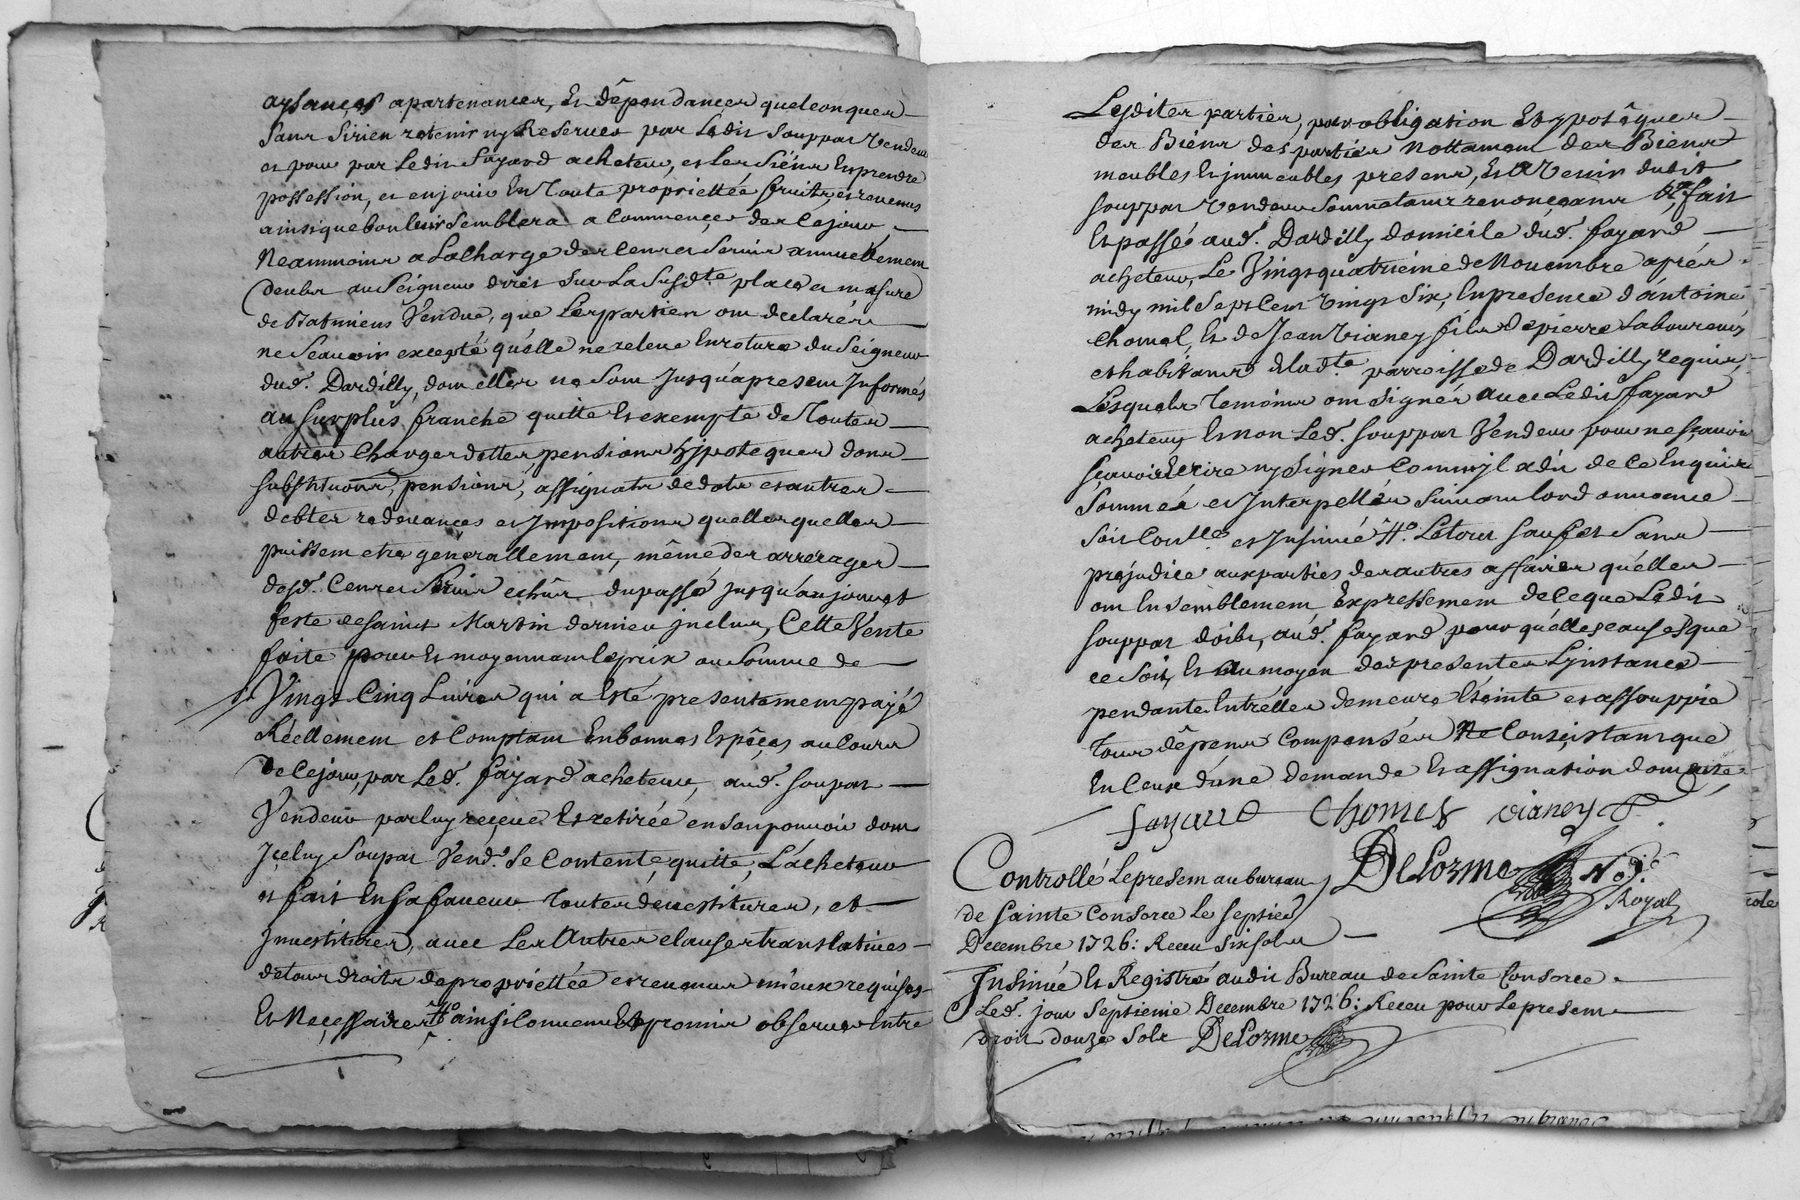 aysances apartenances, Et dêpendances quelconques
sans Sirien retenir ny Reserver par Ledit souppat Vendeur
et pour par Ledit fayard acheteur, et Les Siéns En prendre
possession, et en jouir En Toute propriettée fruits, et revenus
ainsi que bon leur Semblera a Commencer des Cejour,
Neammoins a La Charge des Cens et Servis annuellement
deubs au Seigneur direct Sur La Susdte place et masure
de Batimens Vendue, que Les parties ont declarés
ne Scauoir excepté quélle ne releue En roture du Seigneur
dud. Dardilly, dont elles ne Sont Jusquápresent Informés
au Surplus franche quitte Et exempte de Toutes
autres Charges dettes pensions hÿpoteques dons
substituons, pensions, assignats de dots et autres
debtes redeuances et Impositions quelles quelles
puissent etre generallement, même des arrerages
desd. Cens et Seruis echûs du passé jusquáu jour et
feste de saint Martin dernier inclus, Cette Vente
faite pour Et moyennant le prix ou Somme de
Vingt Cinq Liures qui a Esté presentement payé
Réellement et Comptant En bonnes Espêces au Cours
de Cejour, par Led. fayard acheteur, aud. soupat
Vendeur par luy reçeue Et retirée en son pouuoir dont
Jçeluy Soupat Vend. Se Contente quitte, L'acheteur
et fait En Sa faueur Toutes deuestitures, et
Jnuestitures, auec Les Autres clauses translatiues
de tous droits de propriettée et reuenus mieux requises
Et Neçessaires ainsi Conuenu Et promis obseruer Entre
Lesdites parties, par obligation Et ypotêques
des Biéns des parties Nottament des Biens
meubles Et jmmeubles presens, Et A Venir dudit
souppat Vendeur Soumetans renonçeans &a fait
Et passée aud. Dardilly domicile dud. fayard
acheteur, Le Vingt quatriéme de Nouembre aprés
midy mil Sept Cent Vingt Six, En presence d'antoine
Chomel, Et de Jean Vianey fils de pierre Laboureurs
et habitans de Ladte parroisse de Dardilly requis,
Lesquels Temoins ont Signés auec Ledit fayard
acheteur Et non Led. souppat Vendeur pour ne sçauoir
sçauoir Ecrire ny Signer Comm'jl a dit de Ce Enquis
Sommée et Interpellée Suiuant lordonnance
Soit Contlle et Insinué Le tout sauf et Sans
prejudice aux parties des autres affaires quélles
ont Ensemblement Expressement de Ce que Ledit
souppat doibt, aud. fayard pour quélles causes que
ce Soit, Et Au moyen des presentes Ljnstance
pendante Entrélles demeure Eteinte et assouppie
tous dêpens Compensés Ne Consistans que
En Ceux dúne demande Et assignation dont acte,
fayard Chomel vianey
DeLorme Nore
Royal
Controllé Le present au bureau
de Sainte Consorce Le septie
Decembre 1726: Receu Six sols
Insinué Et Registré audit Bureau de Sainte Consorce
Led. jour Septieme Decembre 1726: Receu pour Le present
droit douze Sols DeLorme